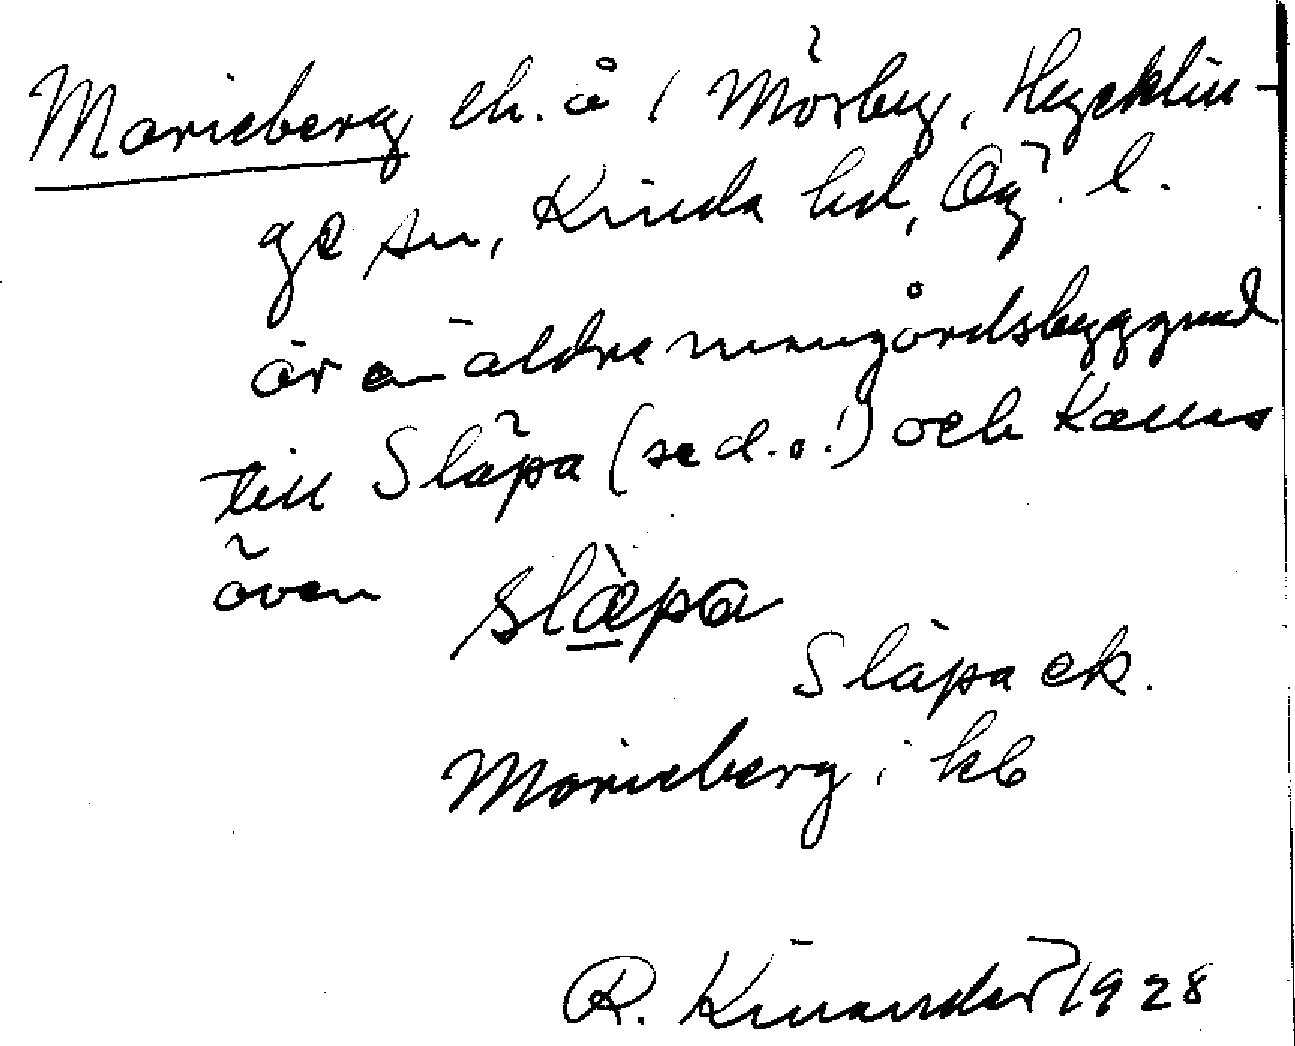 Marieberg eh. å 1 Mörby, Hycklin-
ge sn, Kinda hd, Ög. l.
är en äldre mangårdsbyggnad
till Släpa (se d.o.!) och kallas
även slæ̀pa
Släpa ek.
Marieberg i kb
R. Kinander 1928